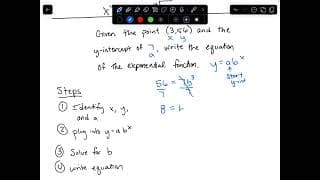 Given the point (3,56) and the
x y
y-intercept of 7, write the equation
a
of the exponential function. y=abˣ
start
y-int
Steps
① Identify x, y,
and a
② plug into y=abˣ
③ Solve for b
④ write equation
56 = 7b³
7 7
8 = b